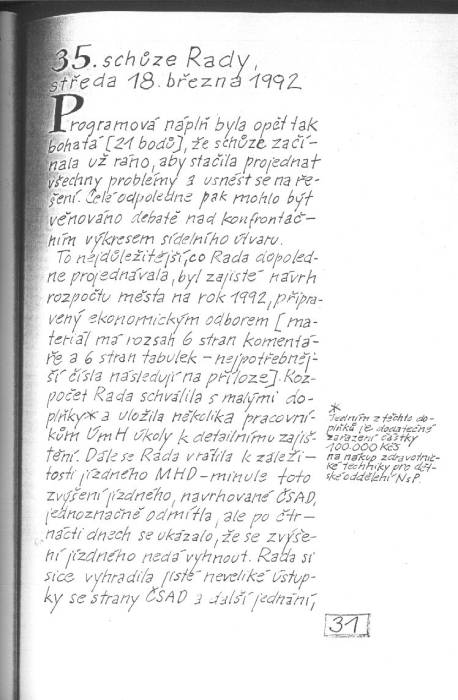 35. schůze Rady,
středa 18. března 1992
Programová náplň byla opět tak
bohatá [21 bodů], že schůze začí-
nala už ráno, aby stačila projednat
všechny problémy a usnést se na ře-
šení. Celé odpoledne pak mohlo být
věnováno debatě nad konfrontač-
ním výkresem sídelního útvaru.
To nejdůležitější, co Rada dopoled-
ne projednávala, byl zajisté návrh
rozpočtu města na rok 1992, připra-
vený ekonomickým odborem [ma-
teriál má rozsah 6 stran komentá-
ře a 6 stran tabulek – nejpotřebněj-
ší čísla následují na příloze]. Roz-
počet Rada schválila s malými do-
plňky* a uložila několika pracovní-
kům ÚmH úkoly k detailnímu zajiš-
tění. Dále se Rada vrátila k záleži-
tosti jízdného MHD – minule toto
zvýšení jízdného, navrhované ČSAD,
jednoznačně odmítla, ale po čtr-
nácti dnech se ukázalo, že se zvýše-
ní jízdného nedá vyhnout. Rada si
sice vyhradila jisté neveliké ústup-
ky se strany ČSAD a další jednání,
*
Jedním z těchto do-
plňků je dodatečné
zařazení částky
100.000 Kčs
na nákup zdravotnic-
ké techniky pro dět-
ské oddělení NsP.
31